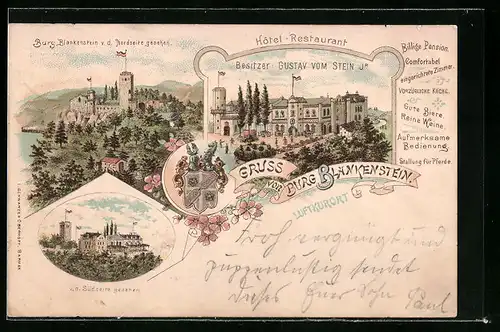 Burg Blankenstein v. d. Nordseite gesehen.
Hôtel-Restaurant
Besitzer: GUSTAV VOM STEIN Jr
Billige Pension.
Comfortabel
eingerichtete Zimmer.
VORZÜGLICHE KÜCHE.
Gute Biere.
Reine Weine.
Aufmerksame
Bedienung.
Stallung für Pferde.
GRUSS
VON BURG BLANKENSTEIN
LUFTKURORT
v. d. Südseite gesehen.
Froh vergnügt und
sendet
dieses Euer Sohn Paul